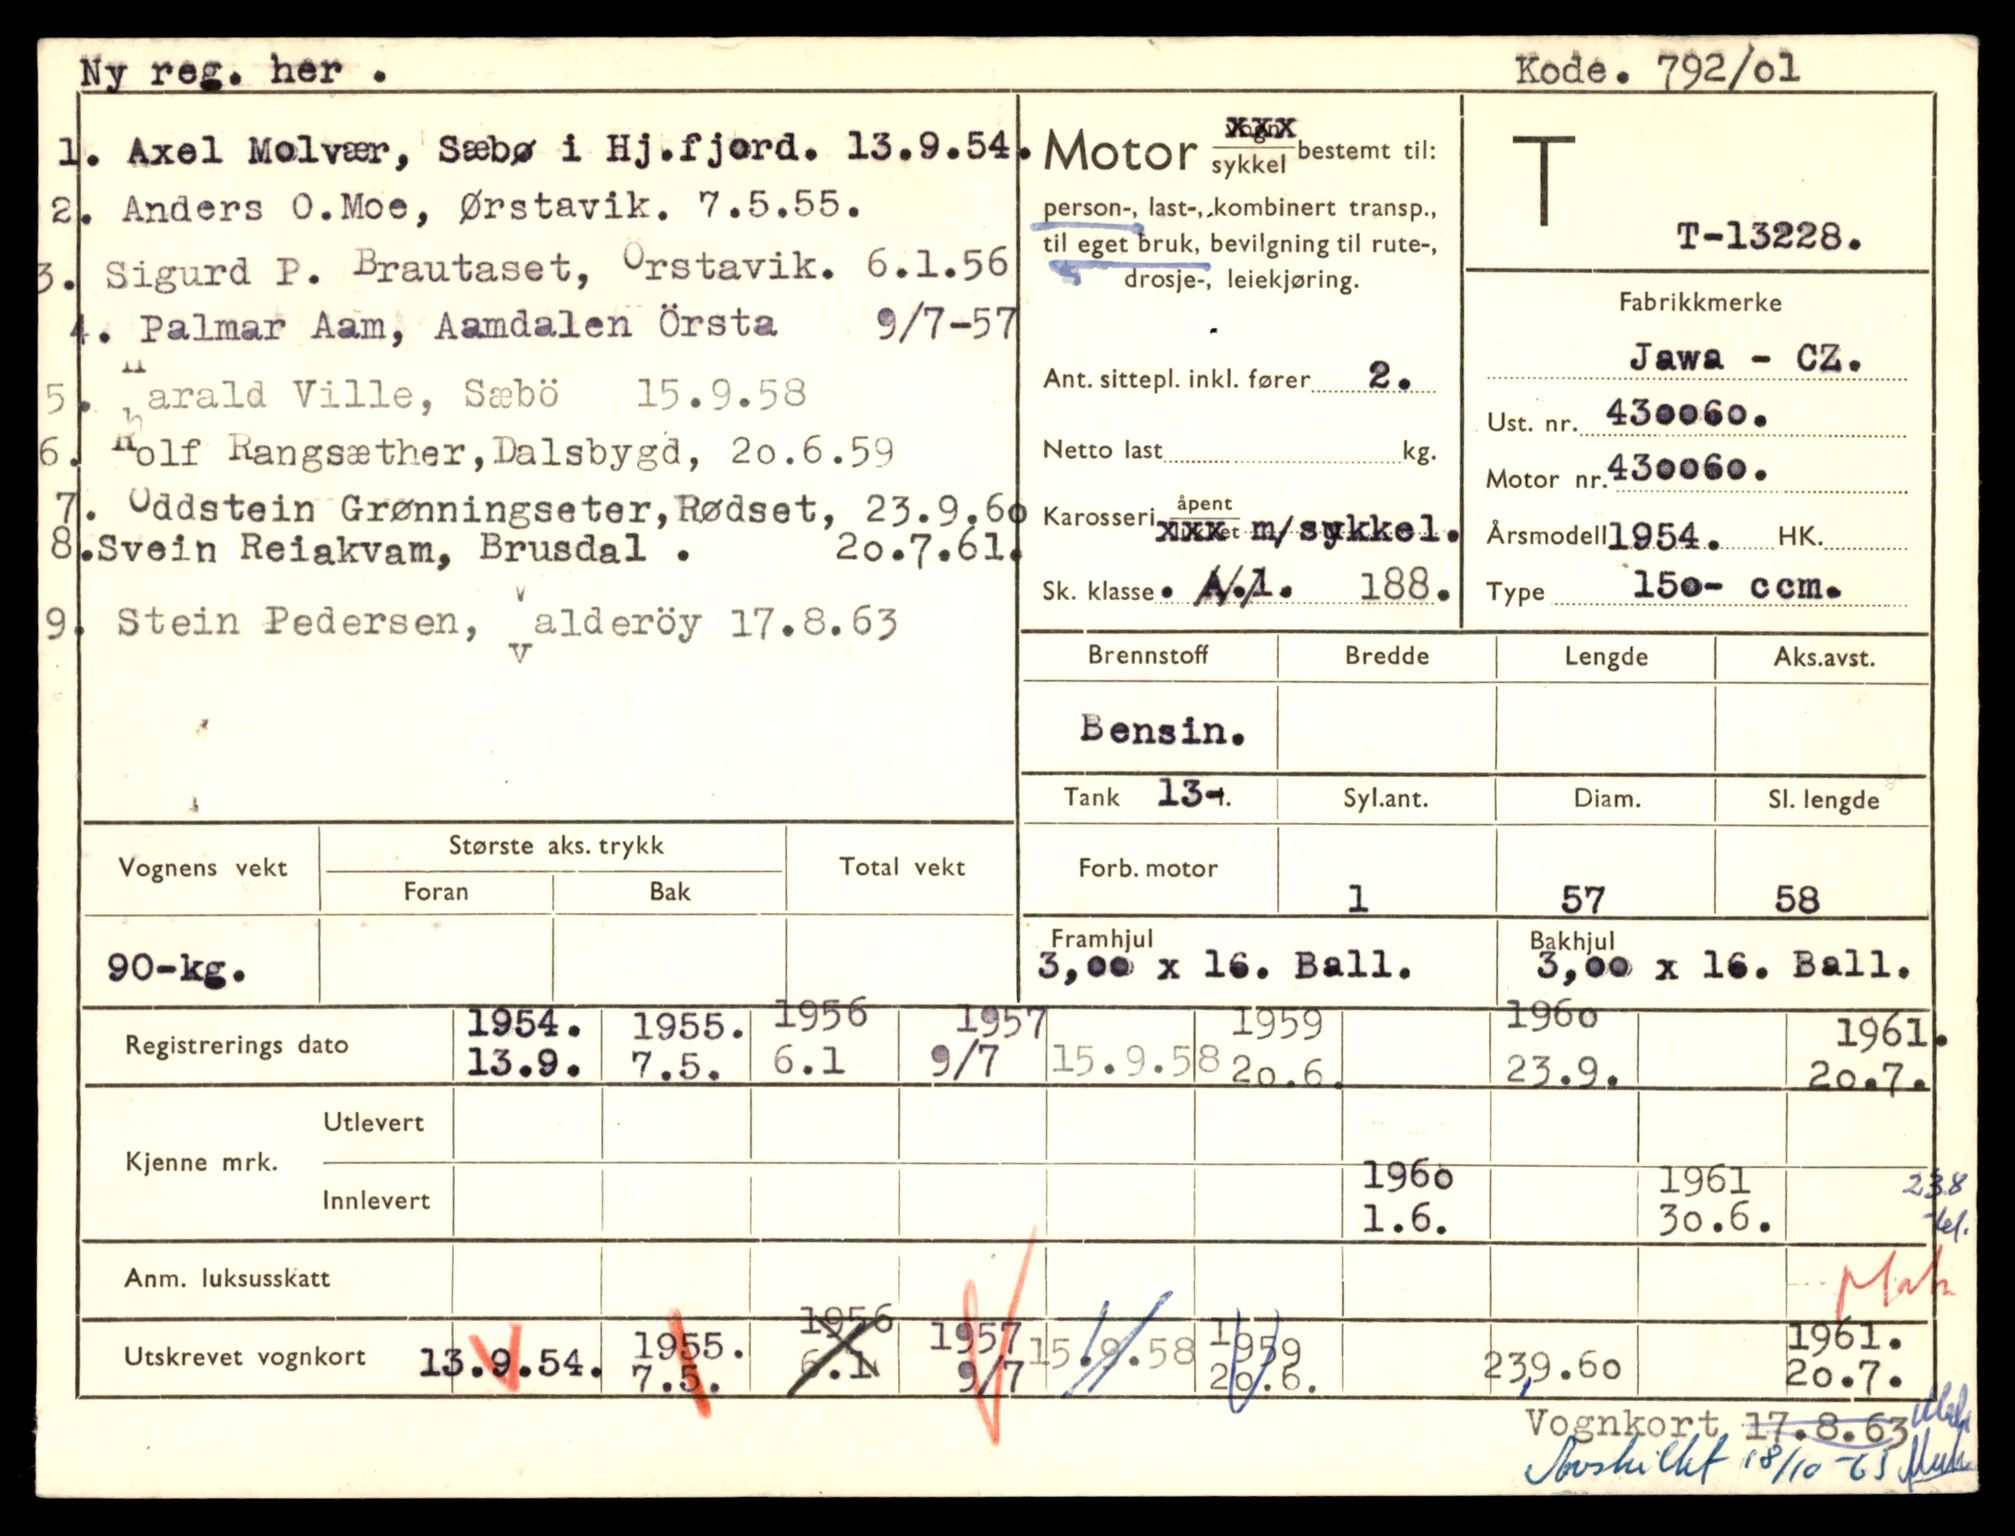 Ny reg. her .
Kode. 792/o1
1. Axel Molvær, Sæbø i Hj.fjord. 13.9.54.
2. Anders O.Moe, Ørstavik. 7.5.55.
3. Sigurd P. Brautaset, Orstavik. 6.1.56
4. Palmar Aam, Aamdalen Örsta 9/7-57
5. Harald Ville, Sæbö 15.9.58
6. Rolf Rangsæther,Dalsbygd, 2o.6.59
7. Oddstein Grønningseter,Rødset, 23.9.6o
8.Svein Reiakvam, Brusdal . 2o.7.61.
9. Stein Pedersen, Valderöy 17.8.63
Motor sykkel bestemt til:
person-, last-, kombinert transp.,
til eget bruk, bevilgning til rute-,
drosje-, leiekjøring.
Ant. sittepl. inkl. fører 2.
Netto last kg.
Karosseri åpent xxx m/sykkel.
Sk. klasse. A.1. 188.
T
T-13228.
Fabrikkmerke
Jawa - CZ.
Ust. nr. 43oo6o.
Motor nr. 43oo6o.
Årsmodell 1954. HK.
Type 15o- ccm.
Brennstoff Bredde Lengde Aks.avst.
Bensin.
Tank 13-l. Syl.ant. Diam. Sl. lengde
Forb. motor 1 57 58
Vognens vekt Største aks. trykk Total vekt
Foran Bak
90-kg.
Framhjul Bakhjul
3,oo x 16. Ball. 3,oo x 16. Ball.
Registrerings dato
1954. 1955. 1956 1957 1959 196o 1961.
13.9. 7.5. 6.1 9/7 15.9.58 2o.6. 23.9. 2o.7.
Kjenne mrk.
Utlevert
Innlevert
196o 1961 23.8
1.6. 3o.6.
Anm. luksusskatt
Utskrevet vognkort
13.9.54. 1955. 1956 1957 15.9.58 1959 23,9.6o 1961.
7.5. 6.1 9/7 2o.6. 2o.7.
Vognkort 17.8.63
Avskiltet 18/10-63